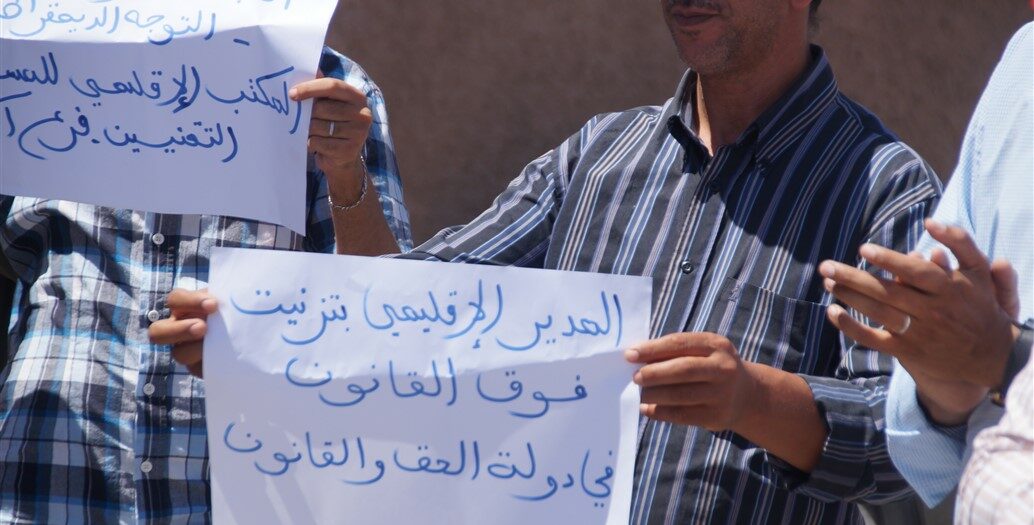 التوجه الديمقراطي
المكتب الإقليمي
التقنيين فرع
المدير الإقليمي بتزنيت
فوق القانون
في دولة الحق والقانون